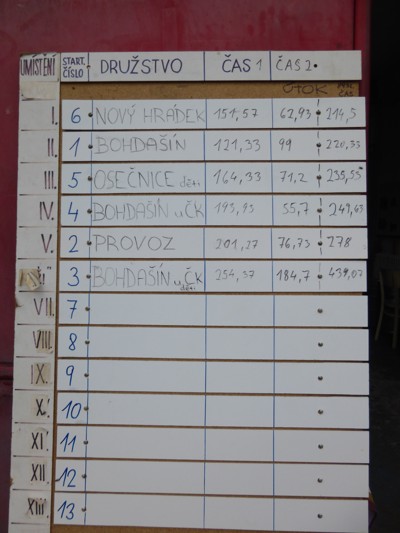 UMÍSTĚNÍ START. ČÍSLO DRUŽSTVO ČAS 1 ČAS 2
ÚTOK
I. 6 NOVÝ HRÁDEK 151,57 62,93 214,5
II. 1 BOHDAŠÍN 121,33 99 220,33
III. 5 OSEČNICE děti 164,33 71,2 235,55
IV. 4 BOHDAŠÍN u ČK 193,93 55,7 249,63
V. 2 PROVOZ 201,27 76,73 278
3 BOHDAŠÍN u ČK děti 254,37 184,7 439,07
VII. 7
VIII. 8
IX. 9
X. 10
XI. 11
XII. 12
XIII. 13